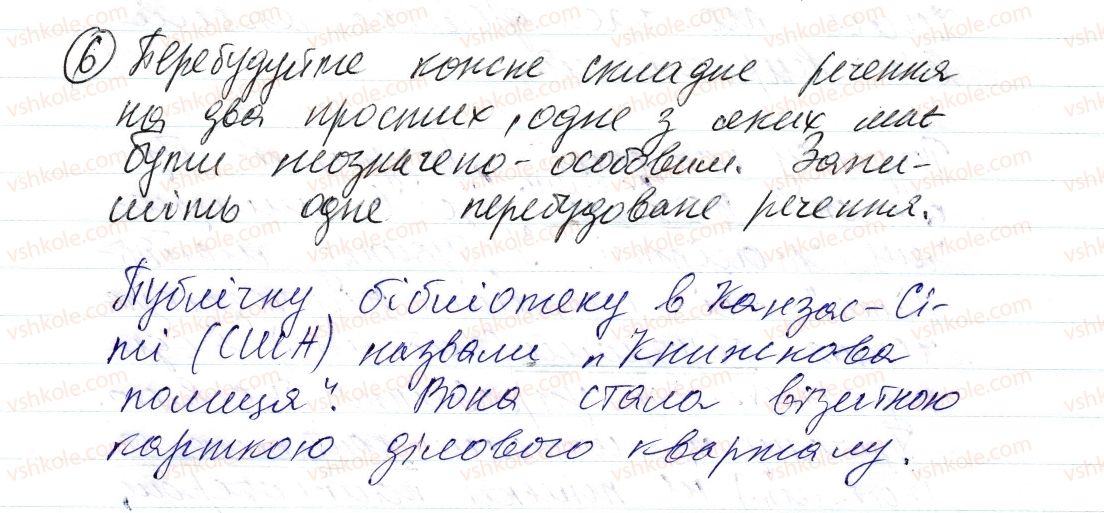 6 Перебудуйте кожне складне речення
на два простих, одне з яких має
бути неозначено-особовим. Запи-
шіть одне перебудоване речення.
Публічну бібліотеку в Канзас-Сі-
ті (США) назвали „Книжкова
полиця". Вона стала візитною
карткою ділового кварталу.